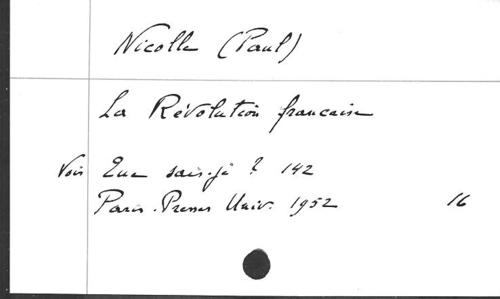 Nicolle (Paul)
La Révolution française
Voir Que sais-je ? 142
Paris. Presses Univ. 1952 16